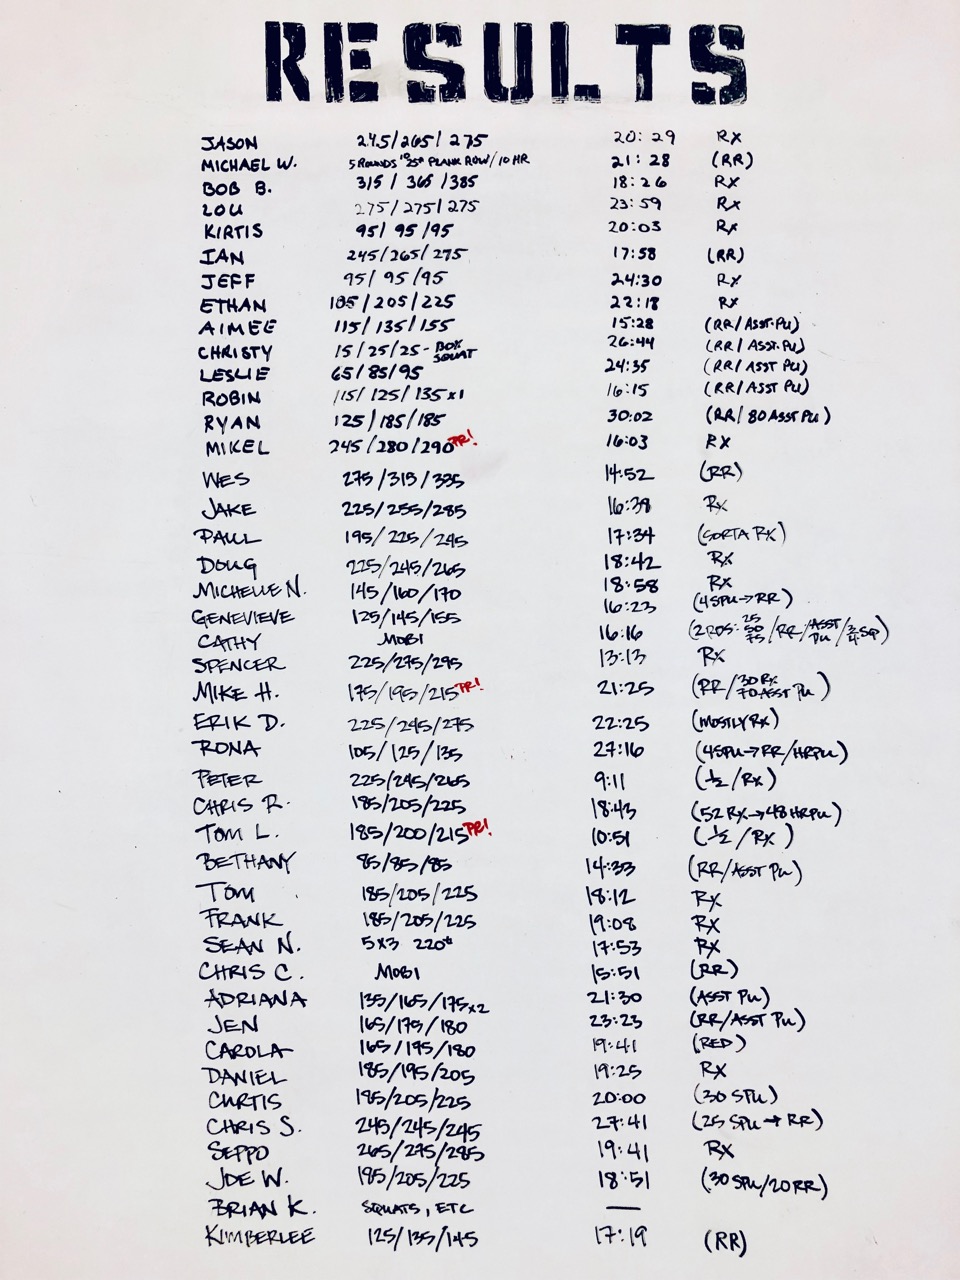 RESULTS
JASON 245/265/275 20:29 RX
MICHAEL W. 5 ROUNDS 10 25# PLANK ROW/10 HR 21:28 (RR)
BOB B. 315/365/385 18:26 RX
LOU 275/275/275 23:59 RX
KIRTIS 95/95/95 20:03 RX
IAN 245/265/275 17:58 (RR)
JEFF 95/95/95 24:30 RX
ETHAN 185/205/225 22:18 RX
AIMEE 115/135/155 15:28 (RR/ASST.PU)
CHRISTY 15/25/25 - BOX SQUAT 26:44 (RR/ASST.PU)
LESLIE 65/85/95 24:35 (RR/ASST PU)
ROBIN 115/125/135x1 16:15 (RR/ASST PU)
RYAN 125/185/185 30:02 (RR/80 ASST PU)
MIKEL 245/280/290 PR! 16:03 RX
WES 275/315/335 14:52 (RR)
JAKE 225/255/285 16:38 RX
PAUL 195/225/245 17:34 (SORTA RX)
DOUG 225/245/265 18:42 RX
MICHELLE N. 145/160/170 18:58 RX
GENEVIEVE 125/145/155 16:23 (45PU→RR)
CATHY MOBI 16:16 (2 RDS: 25 50 75/RR/ASST PU/3/4 SQ)
SPENCER 225/275/295 13:13 RX
MIKE H. 175/195/215 PR! 21:25 (RR/30 RX 70 ASST PU)
ERIK D. 225/245/275 22:25 (MOSTLY RX)
RONA 105/125/135 27:16 (45PU→RR/HRPU)
PETER 225/245/265 9:11 (½/RX)
CHRIS R. 185/205/225 18:43 (52 RX→48 HRPU)
TOM L. 185/200/215 PR! 10:51 (½/RX)
BETHANY 85/85/85 14:33 (RR/ASST PU)
TOM 185/205/225 18:12 RX
FRANK 185/205/225 19:08 RX
SEAN N. 5x3 220# 17:53 RX
CHRIS C. MOBI 15:51 (RR)
ADRIANA 135/165/175x2 21:30 (ASST PU)
JEN 165/175/180 23:23 (RR/ASST PU)
CAROLA 165/195/180 19:41 (RED)
DANIEL 185/195/205 19:25 RX
CURTIS 195/205/225 20:00 (30 SPU)
CHRIS S. 245/245/245 27:41 (25 SPU→RR)
SEPPO 265/275/285 19:41 RX
JOE W. 195/205/225 18:51 (30 SPU/20 RR)
BRIAN K. SQUATS, ETC —
KIMBERLEE 125/135/145 17:19 (RR)